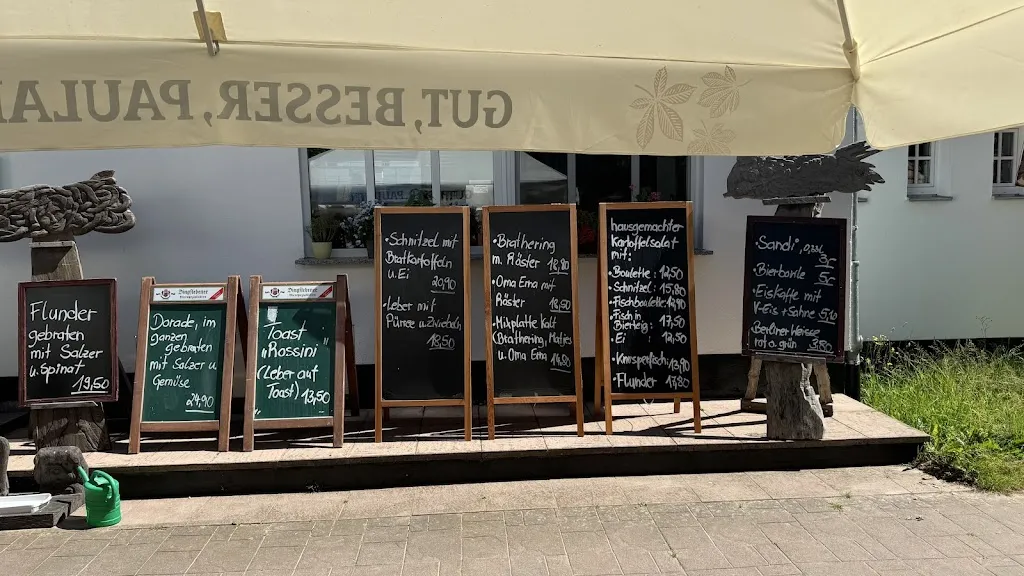 GUT, BESSER, PAULA
Flunder
gebraten
mit Salzer
u. Spinat
19,50
Dingslebener
Dorade, im
ganzen
gebraten
mit Salzer u
Gemüse
24,90
Dingslebener
Toast
"Rossini"
(Leber auf
Toast) 13,50
• Schnitzel mit
Bratkartoffeln
u. Ei
20,90
• Leber mit
Püree u. Zwiebeln
18,50
• Brathering
m. Röster
16,80
• Oma Erna mit
Röster
16,50
• Mixplatte kalt
(Brathering, Matjes
u. Oma Erna
hausgemachter
Kartoffelsalat
mit:
• Boulette: 12,50
• Schnitzel: 15,80
• Fischboulette:
• Fisch in
Bierteig: 17,50
• Ei: 12,50
• Knusperfisch:
• Flunder 17,80
• Sandi, 0,33l
• Bierbowle
• Eiskaffee mit
V-Eis + Sahne 5,10
• Berliner Weisse
rot o. grün 3,80